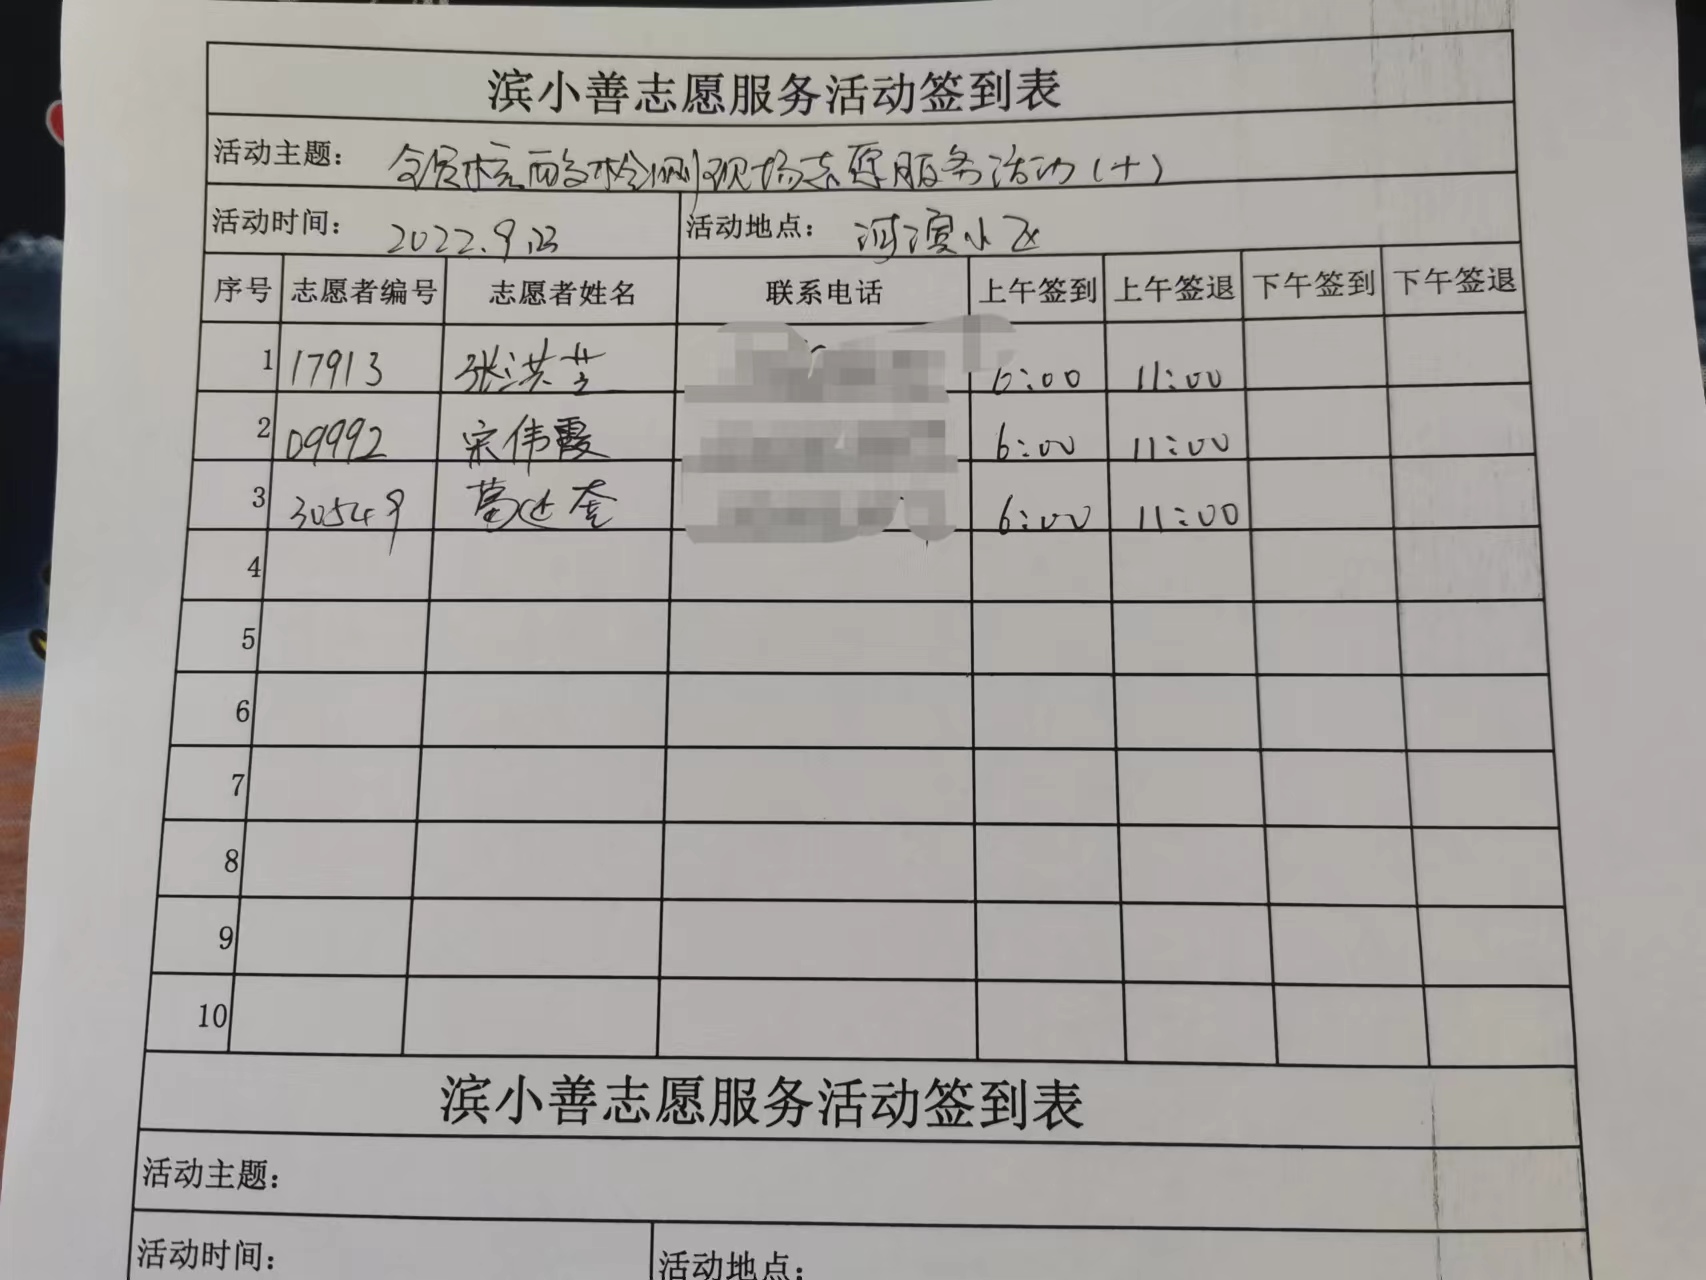 滨小善志愿服务活动签到表
活动主题: 全员核酸检测现场志愿服务活动(十)
活动时间: 2022.9.23 活动地点: 河滨小区
序号 志愿者编号 志愿者姓名 联系电话 上午签到 上午签退 下午签到 下午签退
1 17913 张洪芝 6:00 11:00
2 09992 宋伟霞 6:00 11:00
3 30549 葛达奎 6:00 11:00
4
5
6
7
8
9
10
滨小善志愿服务活动签到表
活动主题:
活动时间: 活动地点: